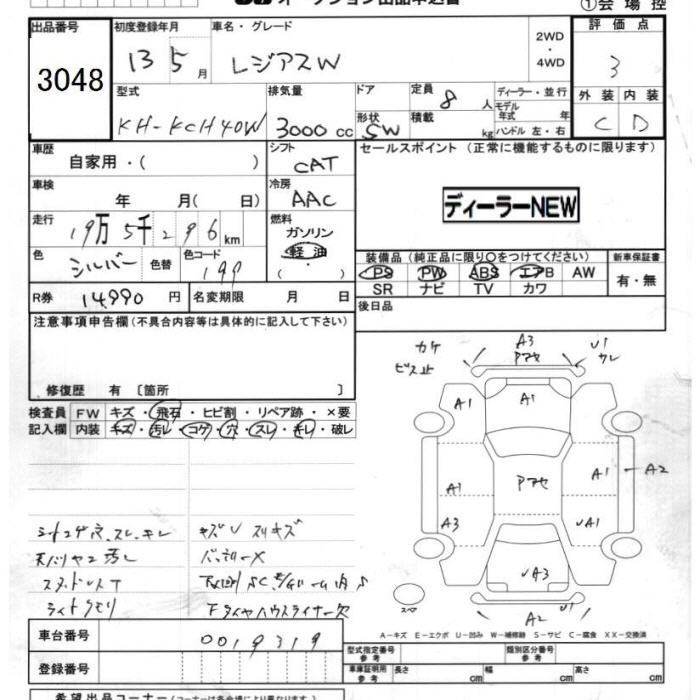 ①会場控
出品番号
3048
初度登録年月
13 5月
車名・グレード
レジアスW
2WD
・
4WD
評価点
3
型式
KH-KCH40W
排気量
3000 cc
ドア
形状
SW
定員
8 人
積載
kg
ディーラー・並行
モデル
年式 年
ハンドル 左・右
外装 内装
C D
車歴
自家用・( )
シフト
CAT
セールスポイント (正常に機能するものに限ります)
ディーラーNEW
車検
年 月( 日)
冷房
AAC
走行
19万5千296km
燃料
ガソリン
軽油
( )
色
シルバー
色替
色コード
199
装備品 (純正品に限り○をつけてください)
PS PW ABS エアB AW
SR ナビ TV カワ
新車保証書
有・無
R券 14,990 円
名変期限 月 日
後日品
注意事項申告欄 (不具合内容等は具体的に記入して下さい)
修復歴 有 〔箇所 〕
検査員
記入欄
FW キズ・飛石・ヒビ割・リペア跡・×要
内装 キズ・汚レ・コゲ・穴・スレ・キレ・破レ
シートコゲ穴、スレ、キレ
キズU スリキズ
バッテリー×
スタッドレスT
ライトクモリ
FタイヤハウスライナーX欠
カケ
ビス止
A3
アセ
U1
ワレ
A1
A1
A1
A1
A1
A2
アセ
A3
UA1
A3
A2
U1
スペア
A-キズ E-エクボ U-凹み W-補修跡 S-サビ C-腐食 XX-交換済
車台番号
0019319
登録番号
型式指定番号
参考
類別区分番号
参考
車庫証明用
参考
長さ cm
幅 cm
高さ cm
希望出品コーナー